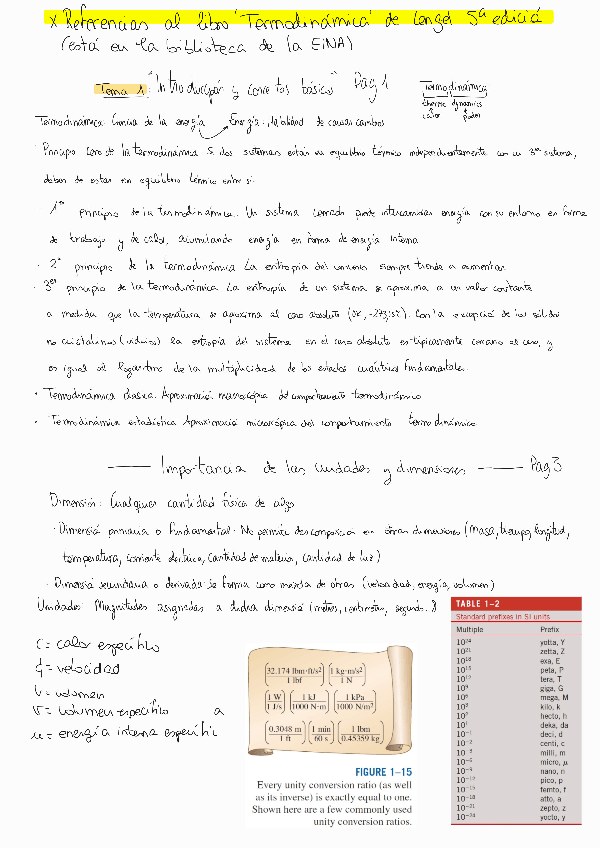 x Referencias al libro "Termodinámica" de Cengel 5ª edició
(está en la biblioteca de la EINA)
Tema 1: "Introducción y conceptos básicos" Pág 1
Termodinámica
therme dynamics
calor poder
Termodinámica: Ciencia de la energía Energía: habilidad de causar cambios
· Principio cero de la termodinámica Si dos sistemas están en equilibrio térmico independientemente con un 3er sistema,
deben de estar en equilibrio térmico entre sí.
1er principio de la termodinámica. Un sistema cerrado puede intercambiar energía con su entorno en forma
de trabajo y de calor, acumulando energía en forma de energía interna
· 2º principio de la termodinámica La entropía del universo siempre tiende a aumentar
· 3er principio de la termodinámica La entropía de un sistema se aproxima a un valor constante
a medida que la temperatura se aproxima al cero absoluto (0K, -273,15ºC). Con la excepción de los sólidos
no cristalinos (vidrios) la entropía del sistema en el cero absoluto es típicamente cercano al cero, y
es igual al logaritmo de la multiplicidad de los estados cuánticos fundamentales.
· Termodinámica clásica. Aproximació macroscópica del comportamiento termodinámico
· Termodinámica estadística Aproximació microscópica del comportamiento termodinámico
Importancia de las unidades y dimensiones Pág 3
Dimensión: Cualquier cantidad física de algo
· Dimensió primaria o fundamental. No permite descomposición en otras dimensiones (masa, tiempo, longitud,
temperatura, corriente eléctrica, cantidad de materia, cantidad de luz)
· Dimensió secundaria o derivada: se forma como mezcla de otras (velocidad, energía, volumen)
Unidades Magnitudes asignadas a dicha dimensió (metros, centímetros, segundos..)
C = calor específico
= velocidad
V = volumen
v = volumen específico a
u = energía interna específic
32.174 lbm·ft/s² 1 kg·m/s²
1 lbf 1 N
1 W 1 kJ 1 kPa
1 J/s 1000 N·m 1000 N/m²
0.3048 m 1 min 1 lbm
1 ft 60 s 0.45359 kg
FIGURE 1–15
Every unity conversion ratio (as well
as its inverse) is exactly equal to one.
Shown here are a few commonly used
unity conversion ratios.
TABLE 1–2
Standard prefixes in SI units
Multiple Prefix
10²⁴ yotta, Y
10²¹ zetta, Z
10¹⁸ exa, E
10¹⁵ peta, P
10¹² tera, T
10⁹ giga, G
10⁶ mega, M
10³ kilo, k
10² hecto, h
10¹ deka, da
10⁻¹ deci, d
10⁻² centi, c
10⁻³ milli, m
10⁻⁶ micro, μ
10⁻⁹ nano, n
10⁻¹² pico, p
10⁻¹⁵ femto, f
10⁻¹⁸ atto, a
10⁻²¹ zepto, z
10⁻²⁴ yocto, y